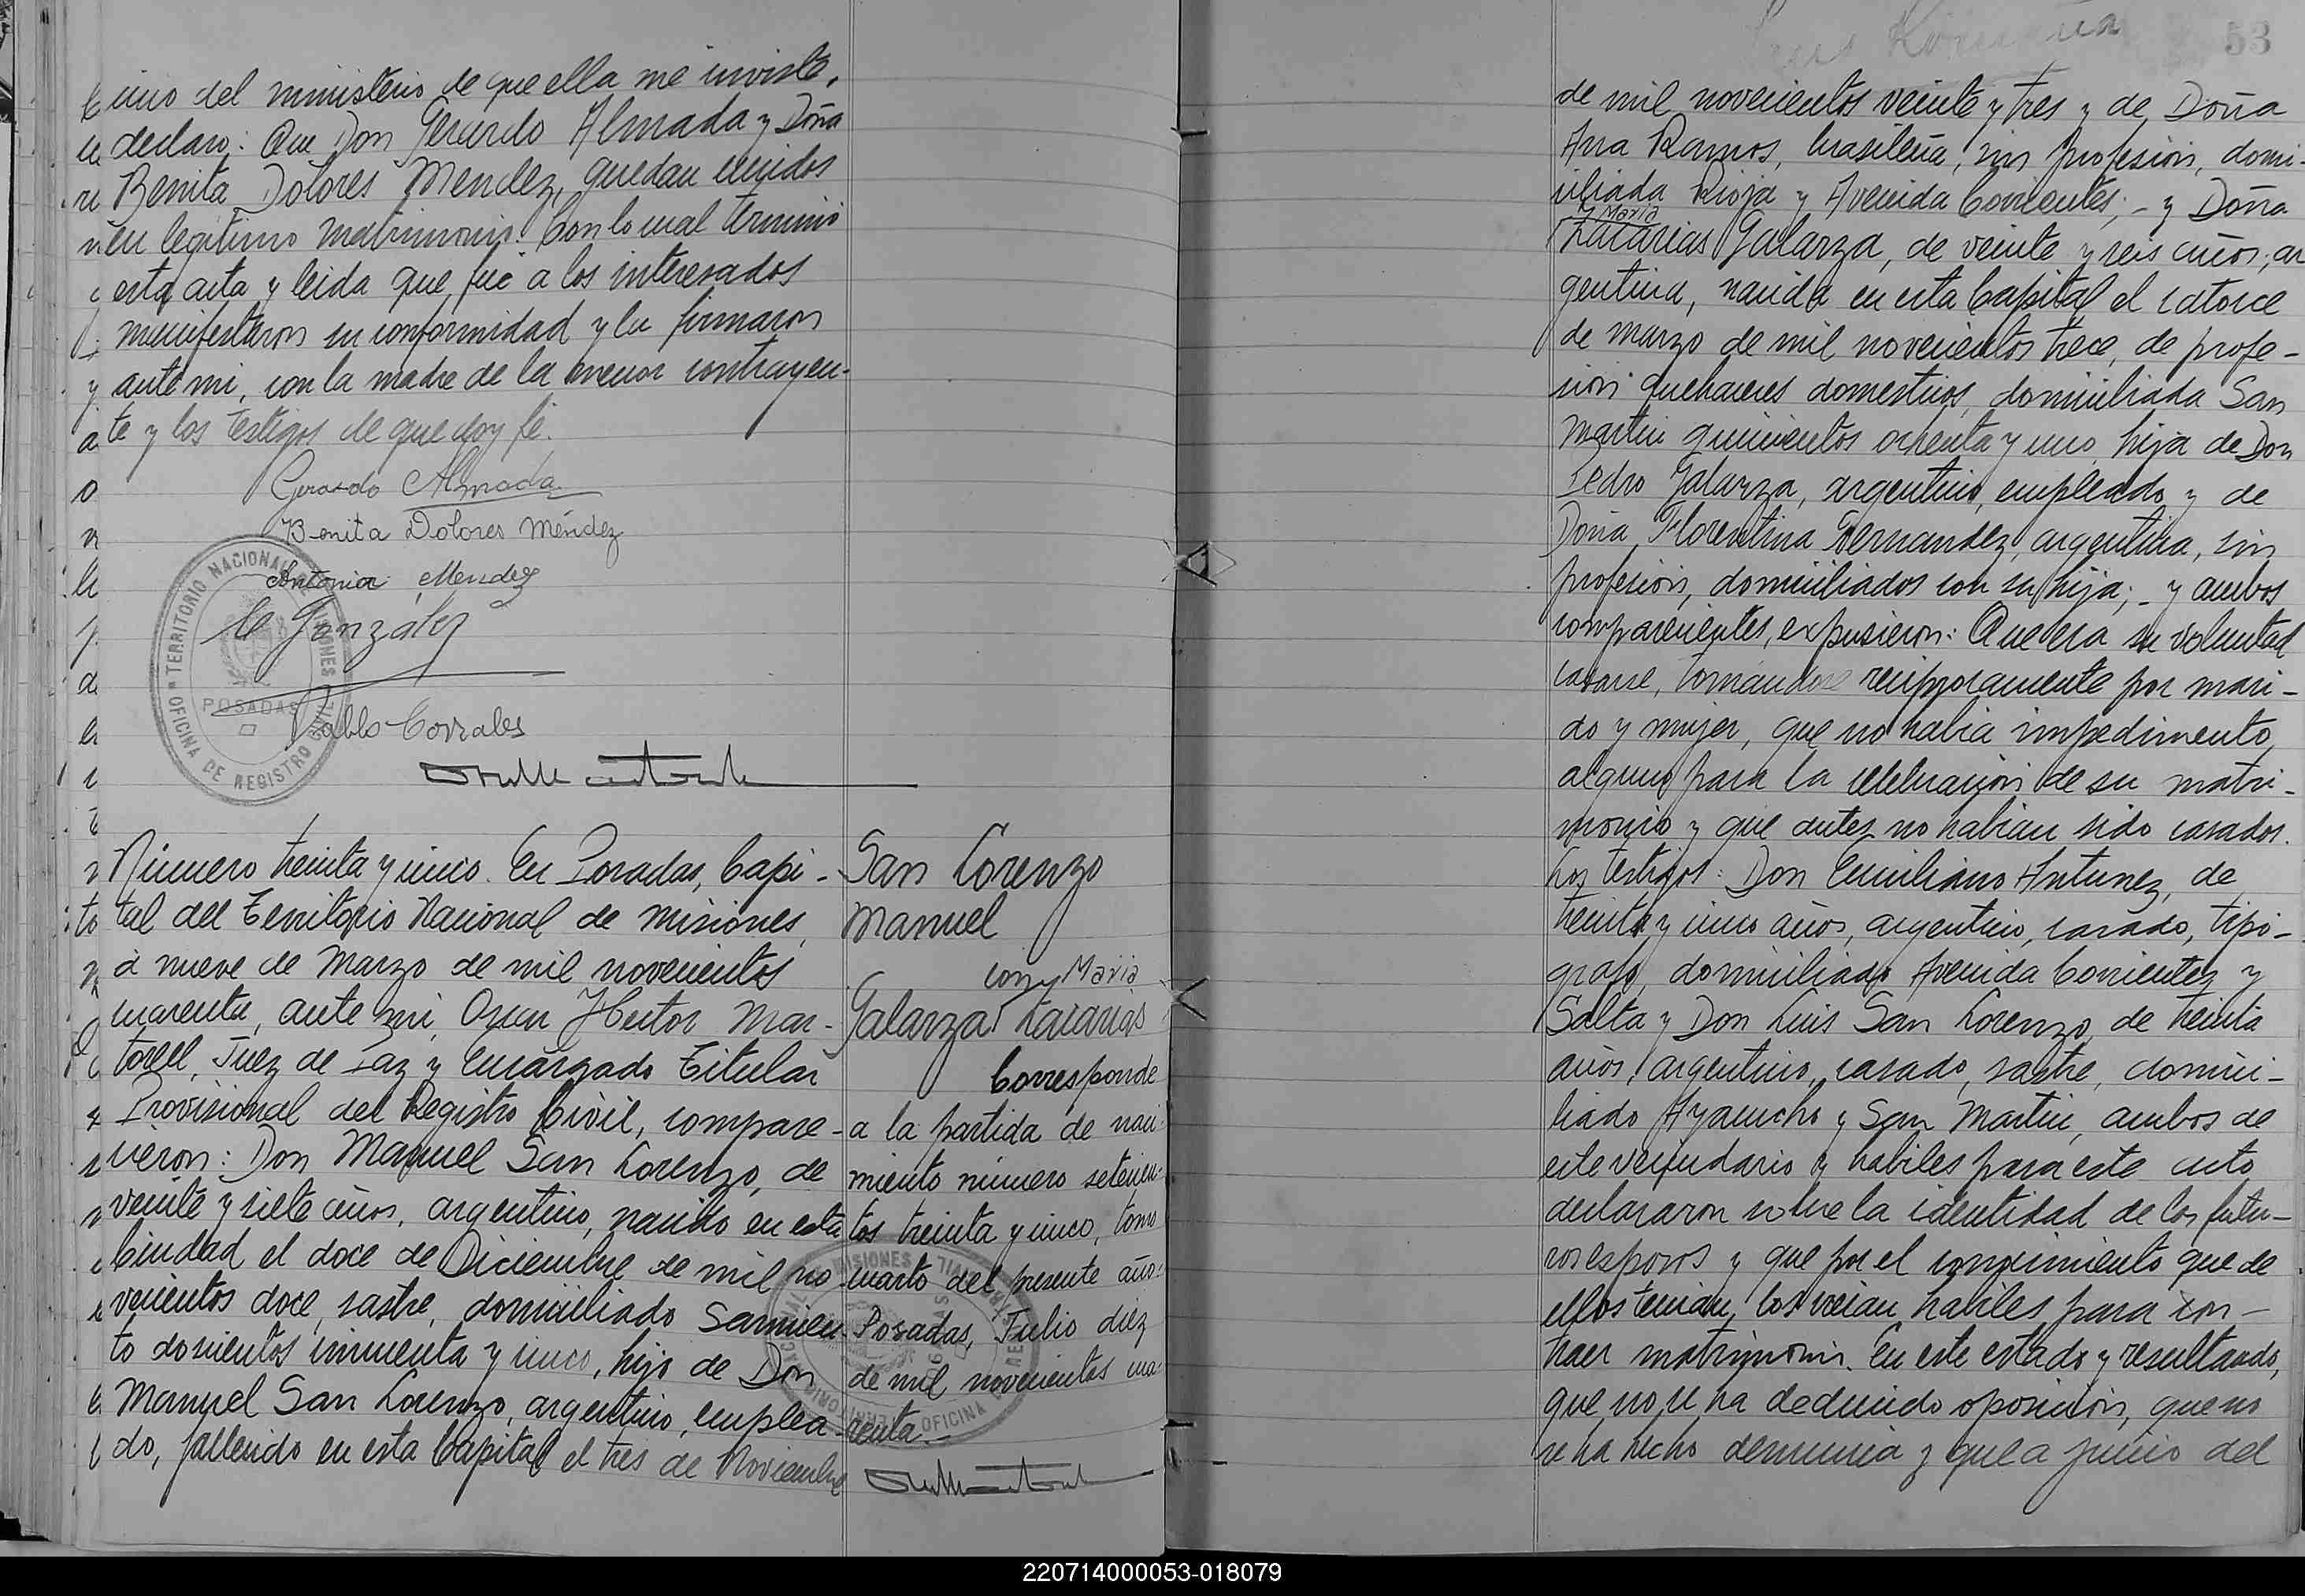 cimo del ministerio de que ella me inviste,
declaro: Que Don Gerardo Almada y Doña
Benita Dolores Mendez, quedan unidos
en legitimo matrimonio. Con lo cual terminó
esta acta y leida que fué a los interesados
manifestaron su conformidad y la firmaron
ante mi, con la madre de la menor contrayen-
te y los testigos de que doy fé.
Gerardo Almada
Benita Dolores Méndez
Antonia Mendez
C González
Pablo Corrales
TERRITORIO NACIONAL DE MISIONES
POSADAS
OFICINA DE REGISTRO CIVIL
Número treinta y cinco. En Posadas, Capi-
tal del Territorio Nacional de Misiones,
a nueve de Marzo de mil novecientos
cuarenta, ante mi, Oscar Hector Mar-
torell, Juez de Paz y Encargado Titular
Provisional del Registro Civil, compare-
cieron: Don Manuel San Lorenzo, de
veinte y siete años, argentino, nacido en esta
Ciudad el doce de Diciembre de mil no-
vecientos doce, sastre, domiciliado Sarmien-
to doscientos cincuenta y cinco, hijo de Don
Manuel San Lorenzo, argentino, emplea-
do, fallecido en esta Capital el tres de Noviembre
San Lorenzo
Manuel
con y Maria
Galarza Zacarias
Corresponde
a la partida de naci-
miento número setecien-
tos treinta y cinco, tomo
cuarto del presente año.
Posadas, Julio diez
de mil novecientos cua-
renta.-
53
de mil novecientos veinte y tres y de Doña
Ana Ramos, brasileña, sin profesión, domi-
ciliada Rioja y Avenida Corrientes; - y Doña
y Maria
Zacarias Galarza, de veinte y seis años, ar
gentina, nacida en esta Capital el catorce
de marzo de mil novecientos trece, de profe-
sión quehaceres domesticos, domiciliada San
Martin quinientos ochenta y uno, hija de Don
Pedro Galarza, argentino, empleado y de
Doña Florentina Fernandez, argentina, sin
profesión, domiciliados con su hija; - y ambos
comparecientes, expusieron: Que era su voluntad
casarse, tomandose reciprocamente por mari-
do y mujer, que no habia impedimento
alguno para la celebración de su matri-
monio y que antes no habian sido casados.
Los testigos: Don Emiliano Antunez, de
treinta y cinco años, argentino, casado, tipó-
grafo, domiciliado Avenida Corrientes y
Salta y Don Luis San Lorenzo, de treinta
años, argentino, casado, sastre, domici-
liado Ayacucho y San Martin, ambos de
este vecindario y habiles para este acto
declararon sobre la identidad de los futu-
ros esposos y que por el conocimiento que de
ellos tenian, los creian habiles para con-
traer matrimonio. En este estado y resultando,
que no se ha deducido oposición, que no
se ha hecho denuncia y que a juicio del
220714000053-018079